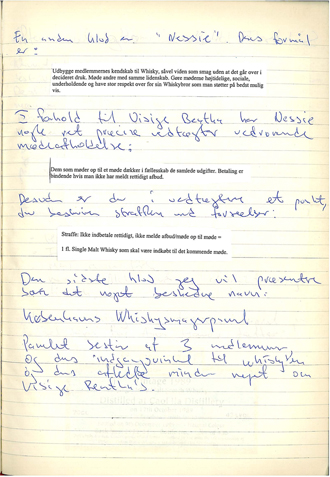 En anden klub er "Nessie". Dens formål
er:
Udbygge medlemmernes kendskab til Whisky, såvel viden som smag uden at det går over i
decideret druk. Møde andre med samme lidenskab. Gøre møderne højtidelige, sociale,
underholdende og have stor respekt for sin Whiskybror som man støtter på bedst mulig
vis.
I forhold til Visige Bentha har Nessie
nogle ret præcise vedtægter vedrørende
mødeafholdelse:
Dem som møder op til et møde dækker i fællesskab de samlede udgifter. Betaling er
bindende hvis man ikke har meldt rettidigt afbud.
Desuden er der i vedtægterne et punkt,
der beskriver straffen ved forseelser:
Straffe: Ikke indbetale rettidigt, ikke melde afbud/møde op til møde =
1 fl. Single Malt Whisky som skal være indkøbt til det kommende møde.
Den sidste klub jeg vil præsentere
bær det noget beskedne navn:
Københavns Whiskysmagerpanel
Panelet består af 3 medlemmer
og deres indgangsvinkel til whiskyen
og deres minder noget om
Visige Bentha's.